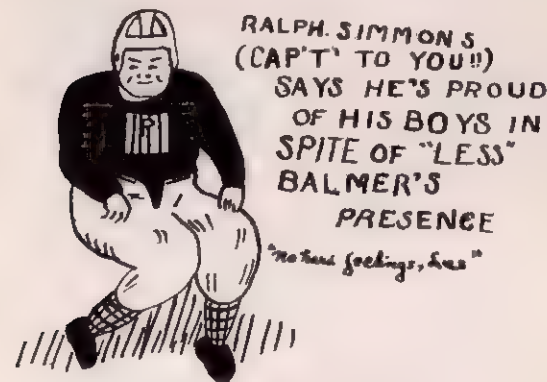 RALPH. SIMMONS
(CAP'T' TO YOU!!)
SAYS HE'S PROUD
OF HIS BOYS IN
SPITE OF "LESS"
BALMER'S
PRESENCE
"no hard feelings, Less"